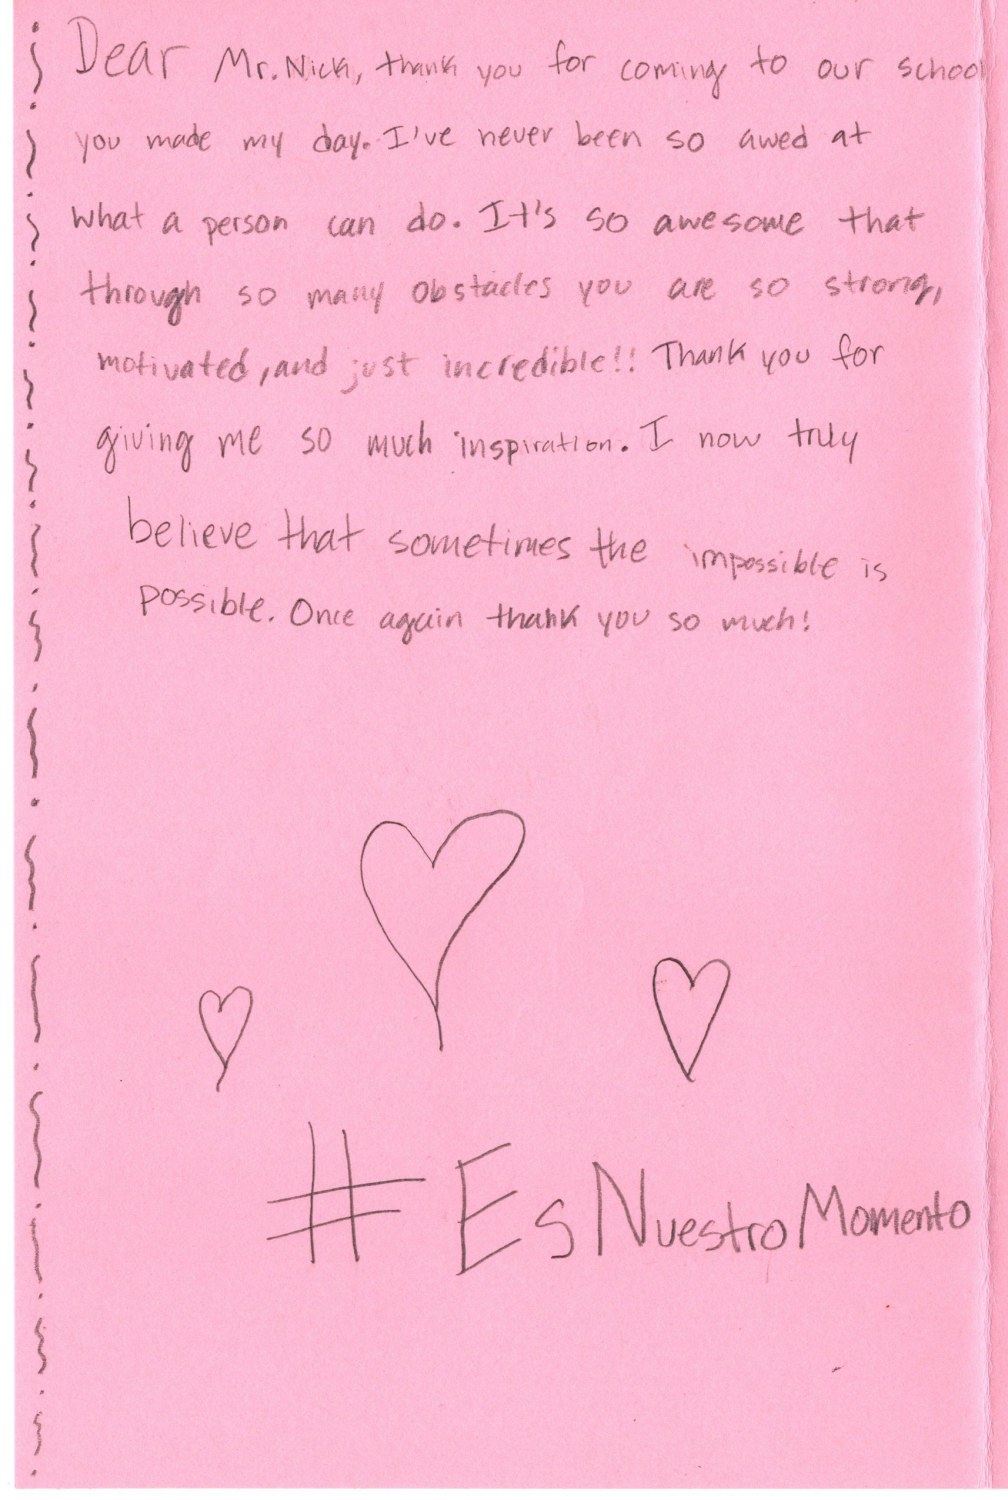 Dear Mr. Nick, thank you for coming to our school
you made my day. I've never been so awed at
what a person can do. It's so awesome that
through so many obstacles you are so strong,
motivated, and just incredible!! Thank you for
giving me so much inspiration. I now truly
believe that sometimes the impossible is
possible. Once again thank you so much!
#EsNuestroMomento